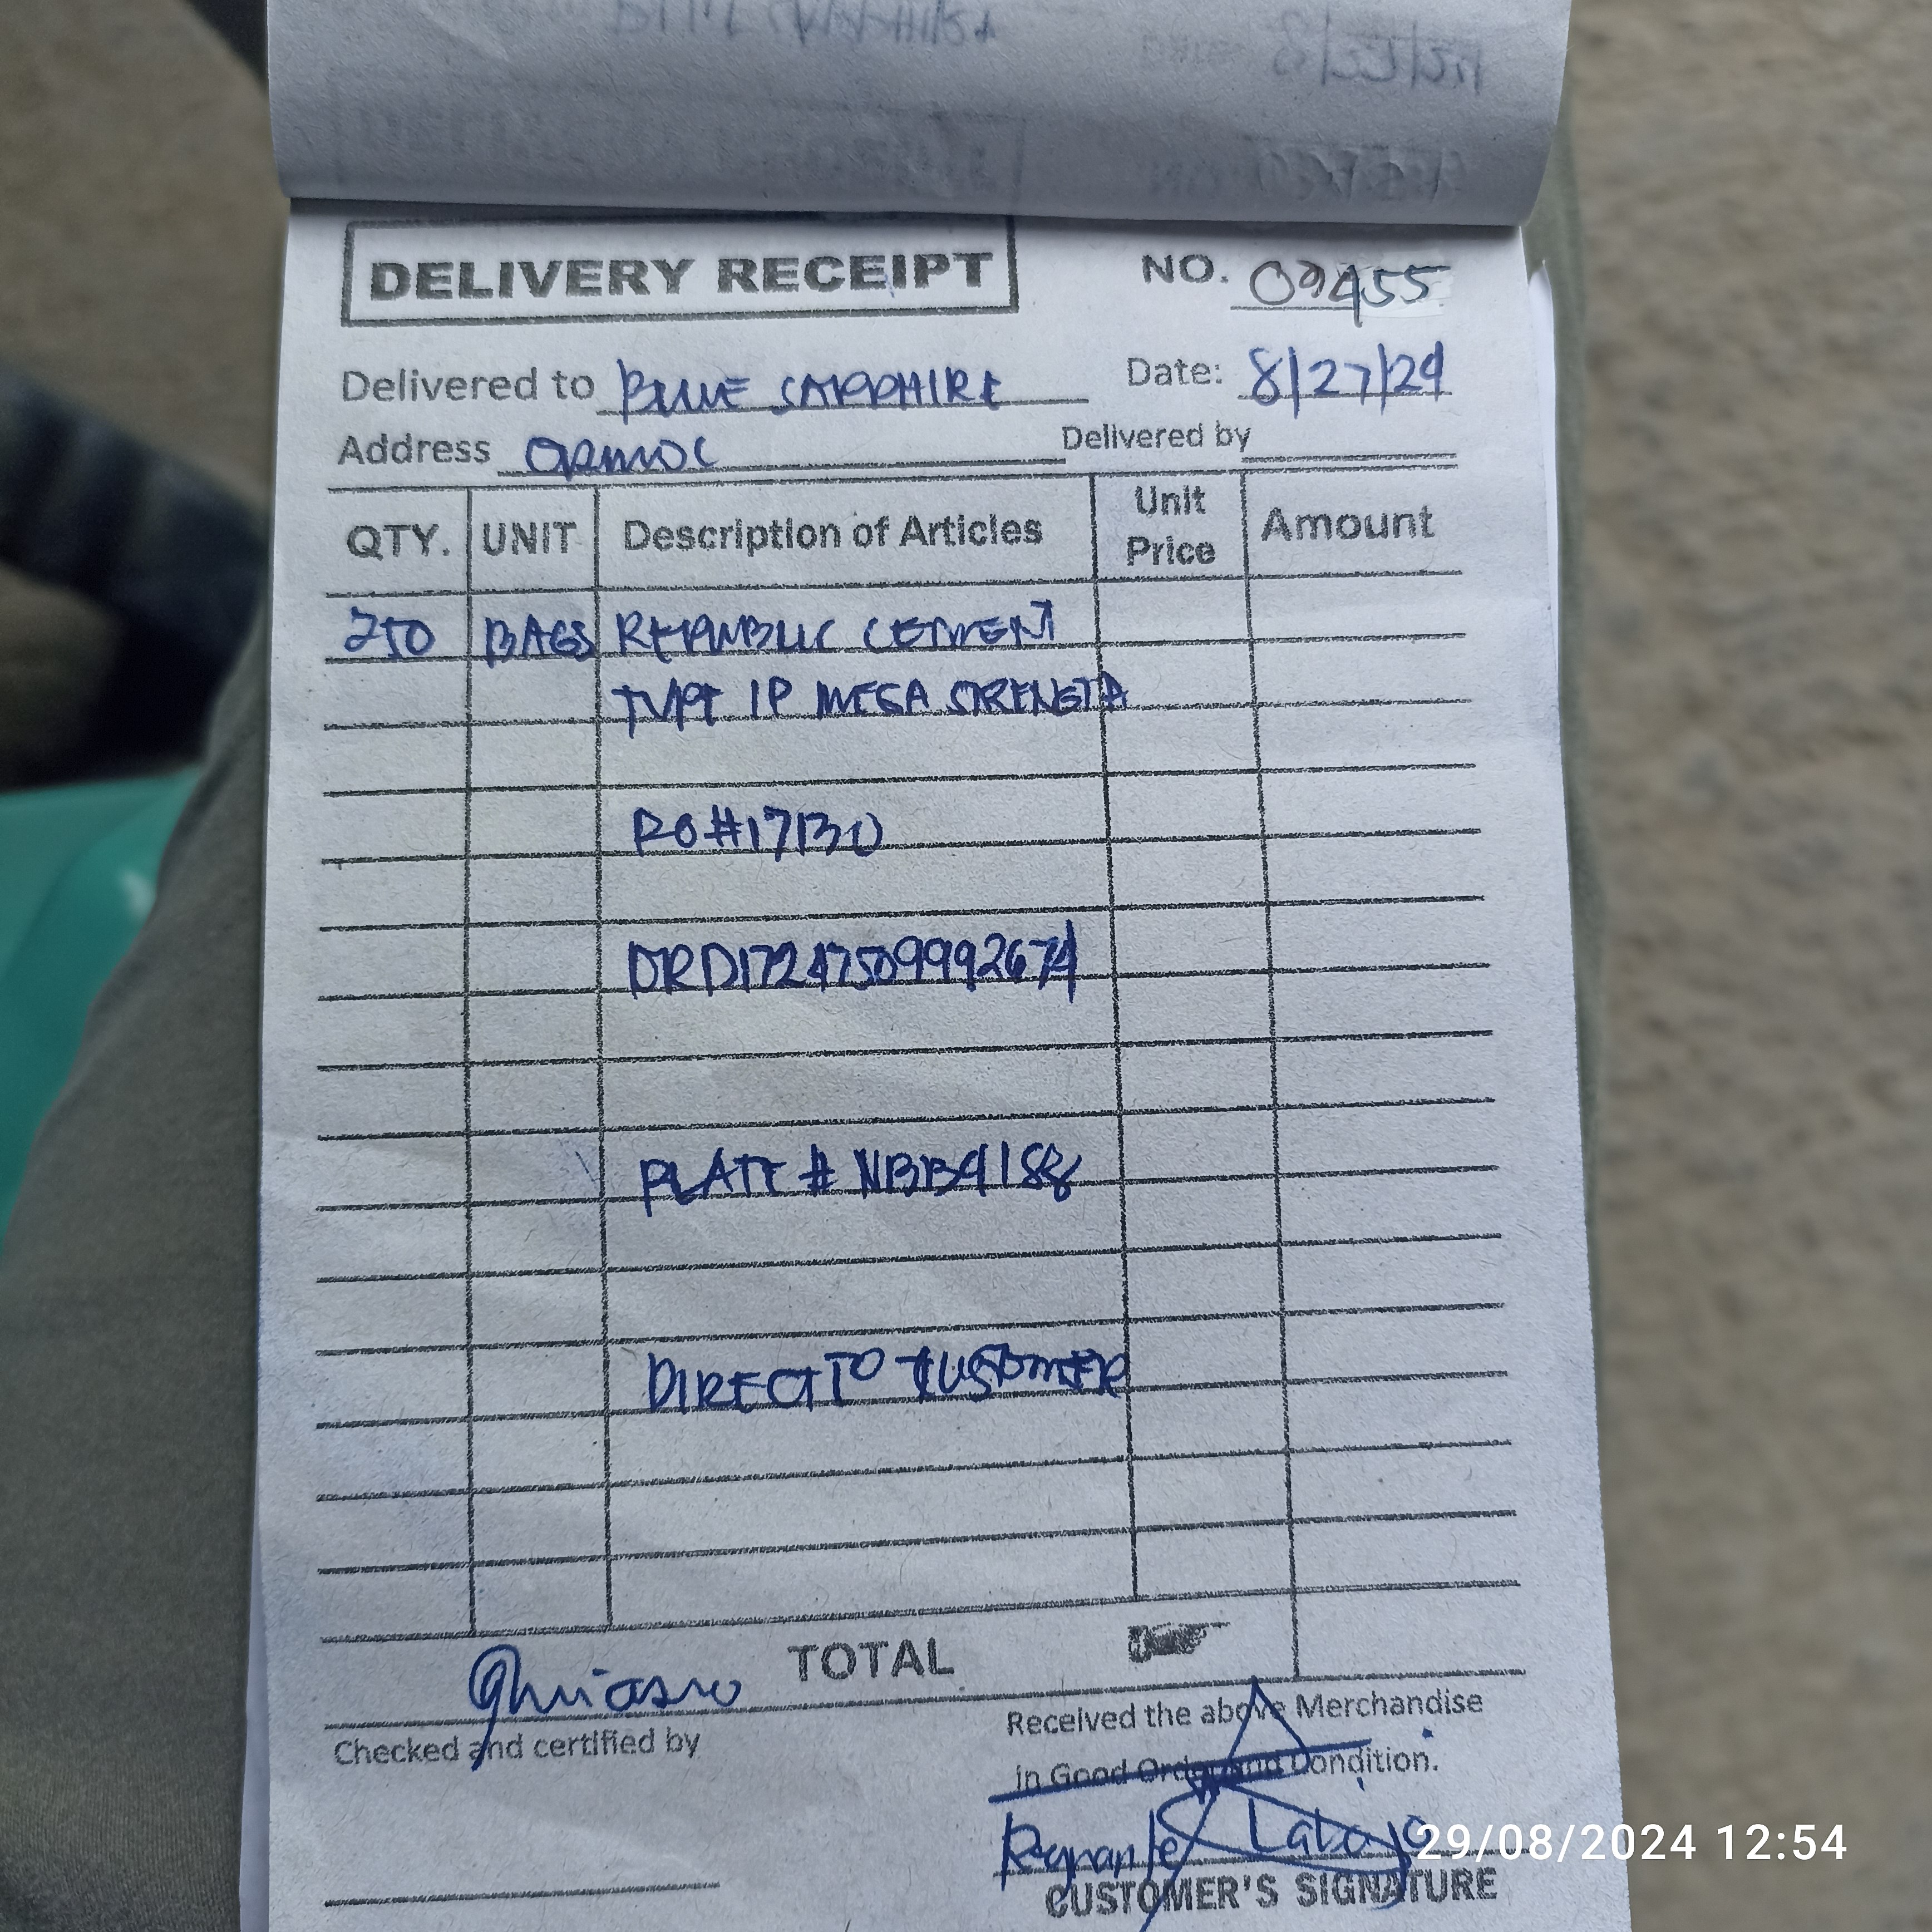 DELIVERY RECEIPT
NO. 09455
Delivered to BLUE SAPPHIRE
Date: 8/27/24
Address ORMOC
Delivered by
QTY. UNIT Description of Articles Unit Price Amount
250 BAGS REPUBLIC CEMENT
TYPE 1P MEGA STRENGTH
PO#17130
DRD17247509992674
PLATE # NBB4188
DIRECT TO CUSTOMER
TOTAL
Checked and certified by
Received the above Merchandise
in Good Order and Condition.
Labajo
CUSTOMER'S SIGNATURE
29/08/2024 12:54